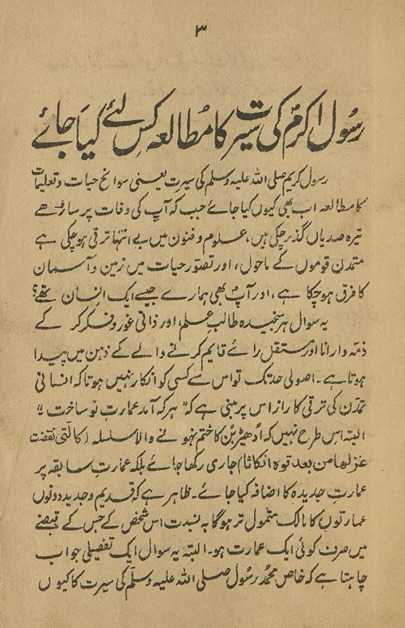 ۳
رسُول اکرم کی سیرت کا مطالعہ کس لئے کیا جائے
رسول کریم صلی اللہ علیہ وسلم کی سیرت یعنی سوانح حیات و تعلیمات
کا مطالعہ اب بھی کیوں کیا جائے جب کہ آپ کی وفات پر ساڑھے
تیرہ صدیاں گذر چکی ہیں، علوم و فنون میں بے انتہا ترقی ہو چکی ہے
متمدن قوموں کے ماحول، اور تصور حیات میں زمین و آسمان
کا فرق ہو چکا ہے، اور آپؐ بھی ہمارے جیسے ایک انسان تھے؟
یہ سوال ہر سنجیدہ طالب علم، اور ذاتی غور و فکر کر کے
ذمہ دارانا اور مستقل رائے قایم کرنے والے کے ذہن میں پیدا
ہوتا ہے۔ اصولی حد تک تو اس سے کسی کو انکار نہیں ہوتا کہ انسانی
تمدن کی ترقی کا راز اس پر مبنی ہے کہ "ہر کہ آمد عمارت نو ساخت"
البتہ اس طرح نہیں کہ اُدھیڑبن کا ختم نہ ہونے والا سلسلہ (کالتی نقضت
غزلها من بعد قوة انكاثا) جاری رکھا جائے بلکہ عمارت سابقہ پر
عمارت جدیدہ کا اضافہ کیا جائے۔ ظاہر ہے کہ قدیم و جدید دونوں
عمارتوں کا مالک متمول تر ہوگا بہ نسبت اس شخص کے جس کے قبضے
میں صرف کوئی ایک عمارت ہو۔ البتہ یہ سوال ایک تفصیلی جواب
چاہتا ہے کہ خاص محمد رسول صلی اللہ علیہ وسلم کی سیرت کا کیوں